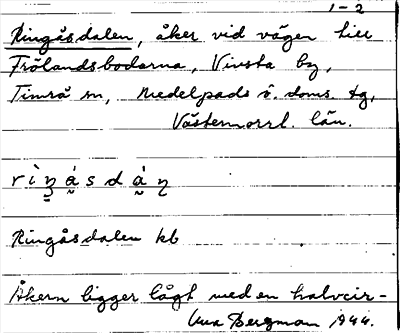 1-2
Ringåsdalen, åker vid vägen till
Frölandsbodarna, Vivsta by,
Timrå sn, Medelpads ö. doms. tg,
Västernorrl. län.
Ringåsdalen kb
Åkern ligger lågt med en halvcir-
Bergman 1944.